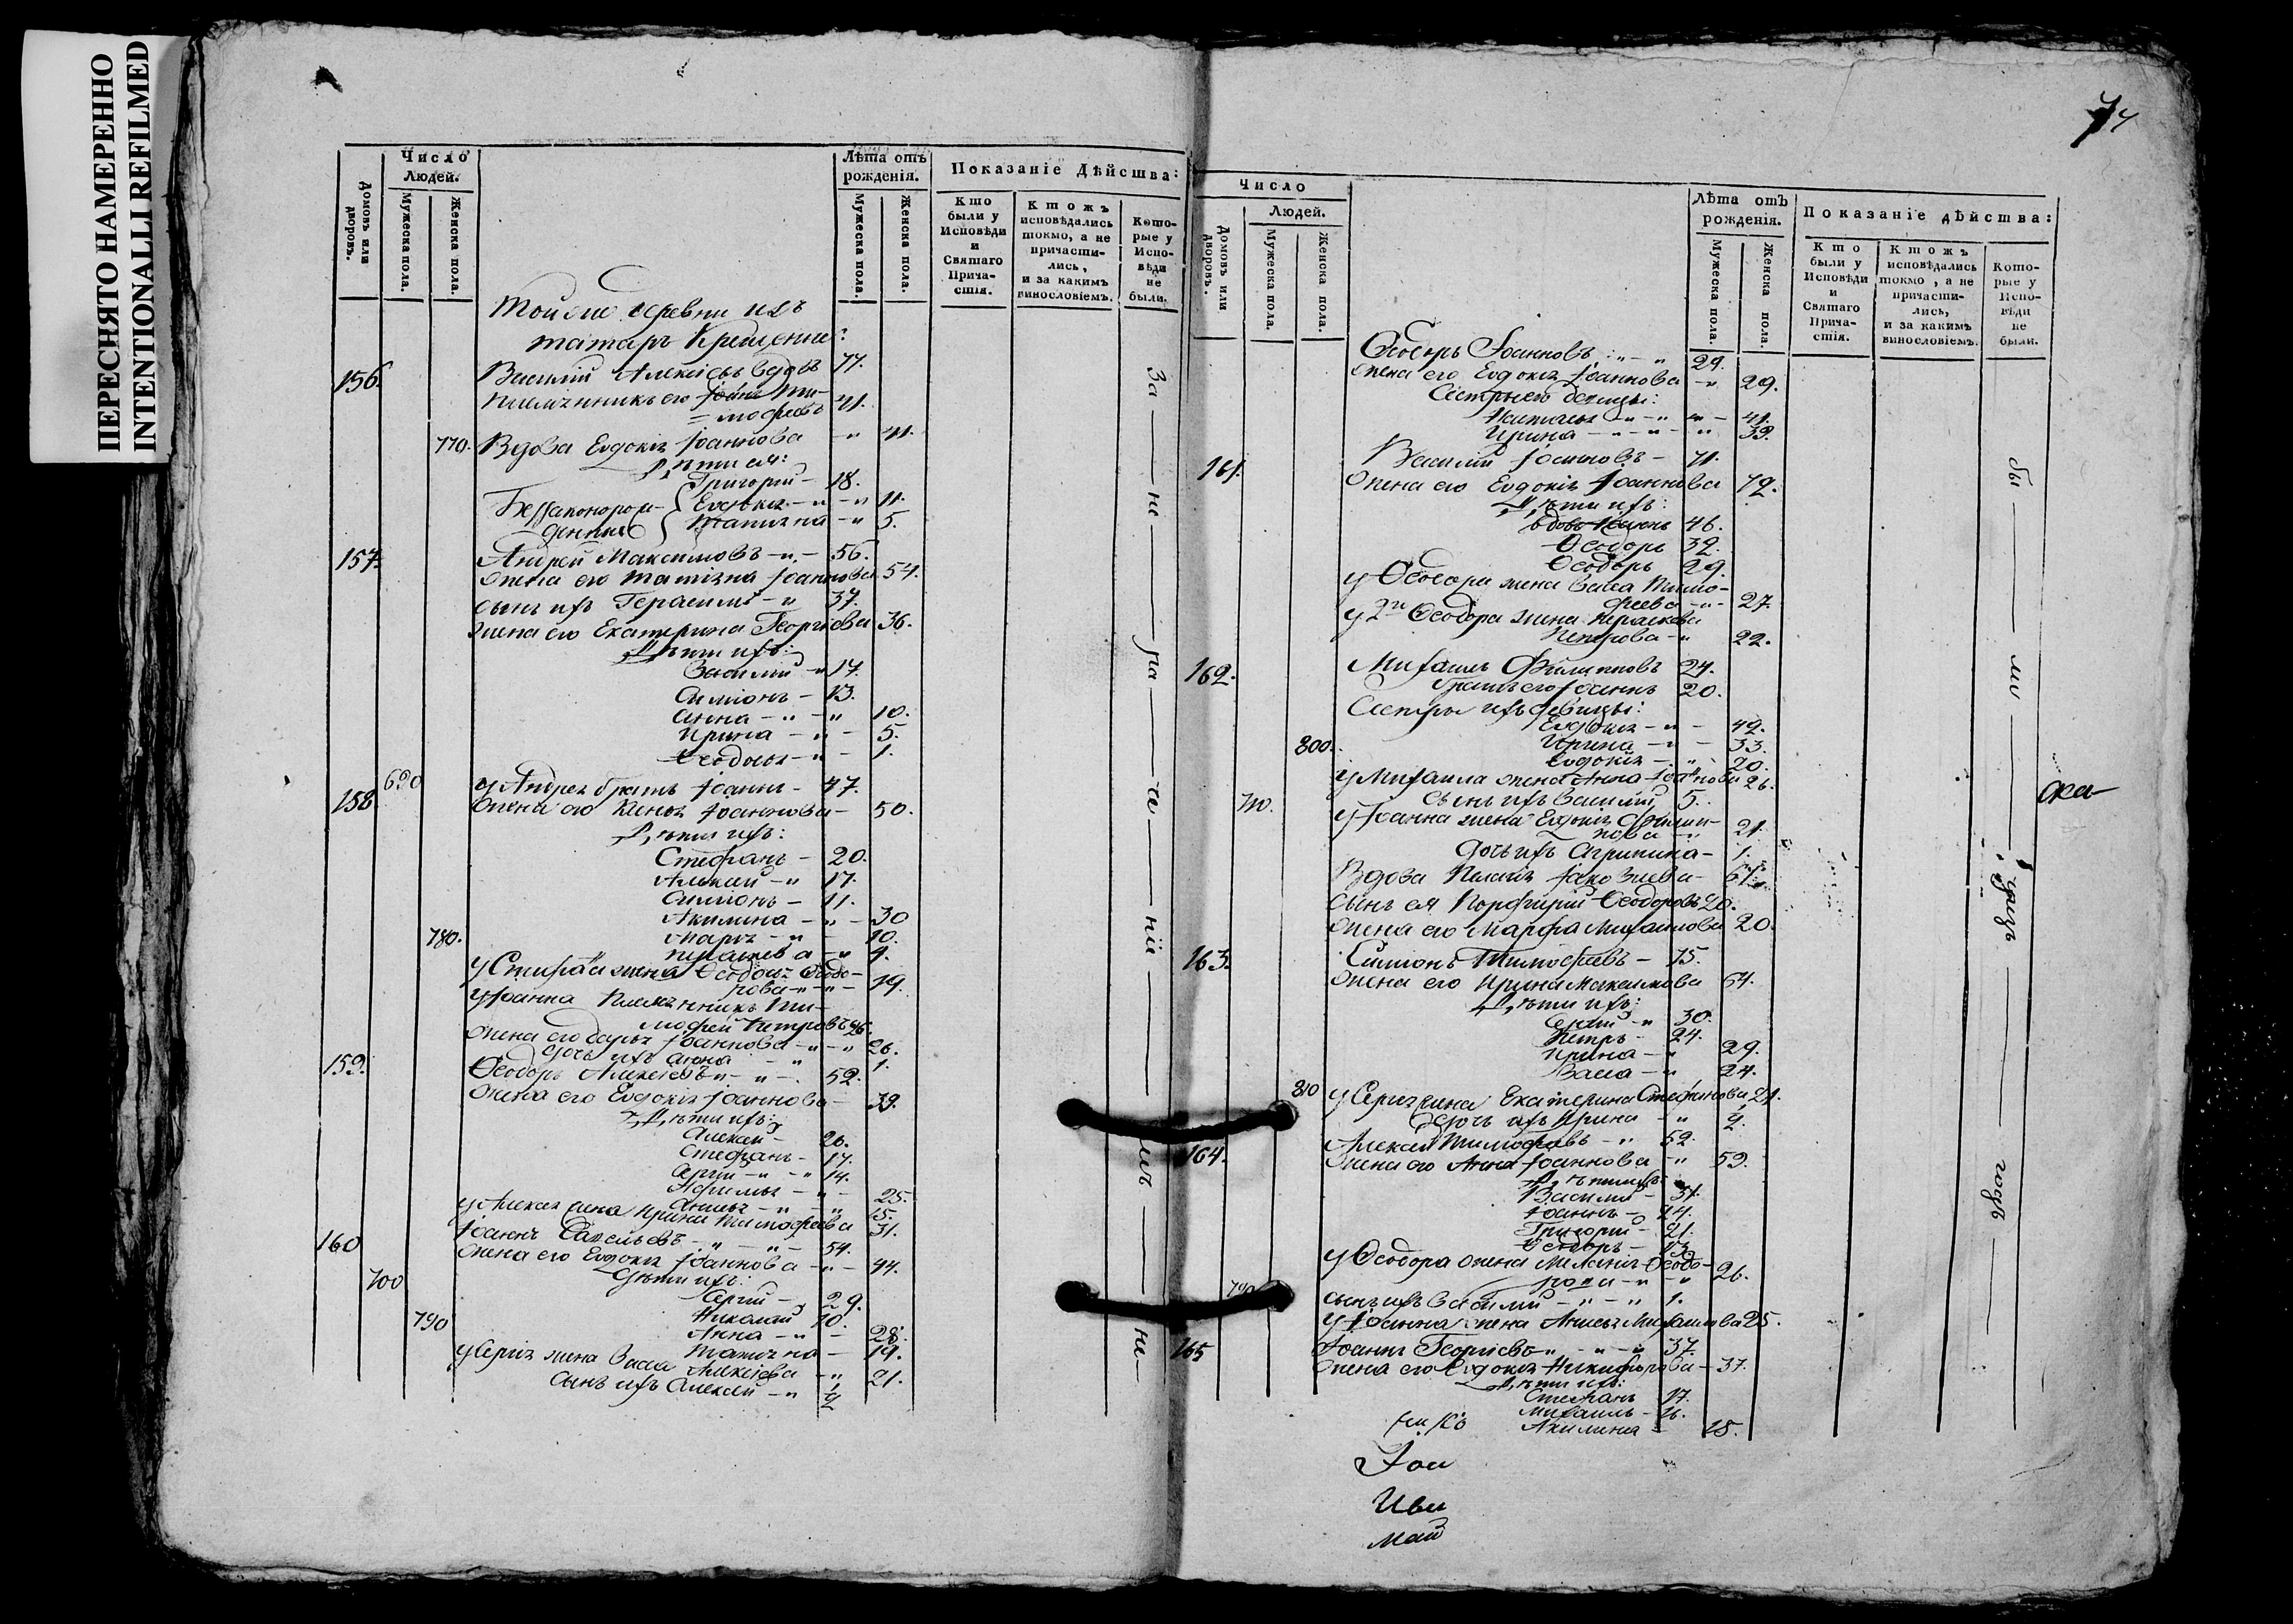 ПЕРЕСНЯТО НАМЕРЕННО
INTENTIONALLI REFILMED
Число
Людей.
Домовъ или дворовъ.
Мужеска пола.
Женска пола.
Лѣта отъ
рожденія.
Мужеска пола.
Женска пола.
Показаніе Дѣйства:
Кто были у Исповѣди и Святаго Прича- стія.
Ктожъ исповѣдались токмо, а не причасти- лись, и за какимъ винословіемъ.
Кото- рые у Испо- вѣди не были.
Той же деревни изъ
татаръ Крещенне:
156. Василій Алексѣевъ вдовъ 77.
Племянникъ его Іоаннъ Ти-
=мофеевъ 41.
770. Вдова Евдокія Іоаннова - " 41.
Дѣти ея:
Григорій - 18.
Беззаконорож- Евдокія - " - " 11.
денные Татіяна - " 5.
157. Андрей Максимовъ - " - 56.
Жена его Татіяна Іоаннова 54.
сынъ ихъ Герасимъ - " 37.
жена его Екатерина Георгіева 36.
Дѣти ихъ:
Василій - " 17.
Симіонъ - 13.
Анна - " - " 10.
Ирина - " - 5.
Ѳеодосія - " - 1.
690 у Андрея братъ Іоаннъ - 47.
158 Жена его Ксенія Іоаннова - 50.
Дѣти ихъ:
Стефанъ - 20.
Алексій - " 17.
Симіонъ - 11.
Акилина - " - 30
780. Марія - " - 10.
- " 9.
у Стефана жена Ѳеодосія Ѳеодо-
рова - " - " - 19.
у Іоанна Племянникъ Ти-
мофей Петровъ 26.
Жена его Дарія Іоаннова - " - " 26.
дочь ихъ Анна - " 1.
159. Ѳеодоръ Алексіевъ " - " - 52.
Жена его Евдокія Іоаннова - 39.
Дѣти ихъ:
Алексій - 26.
Стефанъ - 17.
Сергій - " - " 14.
- " - 25.
Анисія - " - " 15.
у Алексія жена Ирина Тимофеева 31.
160 Іоаннъ Савельевъ - " - " - 54.
Жена его Евдокія Іоаннова - " - 44.
700 Дѣти ихъ:
Сергій - 29.
790 Николай 10.
Анна - " - 28.
Татіяна - 19.
у Сергія жена Васса Алексіева - " 21.
Сынъ ихъ Алексій - " 1/2
За — не — ра — — де — ні — мъ — не —
74
Число
Людей.
Домовъ или дворовъ.
Мужеска пола.
Женска пола.
Лѣта отъ
рожденія.
Мужеска пола.
Женска пола.
Показаніе дѣйства:
Кто были у Исповѣди и Святаго Прича- стія.
Ктожъ исповѣдались токмо, а не причасти- лись, и за какимъ винословіемъ.
Кото- рые у Испо- вѣди не были.
Ѳеодоръ Іоанновъ : " - " 29.
жена его Евдокія Іоаннова - " 29.
Сестры его девицы:
Наталія - " - " " - 41.
Ирина - " - " - " 39.
161. Василій Іоанновъ - 71.
Жена его Евдокія Іоаннова 72.
Дѣти ихъ:
вдовъ 46.
Ѳеодоръ 32.
Ѳеодоръ 29.
у Ѳеодора жена Васса Тимо-
феева - " - 27.
у 2го Ѳеодора жена Параскева
Петрова - " 22.
162. Михаилъ Филипповъ 24.
братъ его Іоаннъ 20.
Сестры ихъ девицы:
Евдокія - " - 42.
800. Ирина - " - 33.
Евдокія - " - 20.
у Михаила жена Анна Іоаннова 26.
710. Сынъ ихъ Василій, 5.
у Іоанна жена Евдокія Филип-
пова - " 21.
дочь ихъ Агрипина - 1.
Вдова Пелагія Іаковлева - 61.
сынъ ея Порфирий Ѳеодоровъ 20.
жена его Марфа Михаилова 20.
163. Симіонъ Тимофеевъ - 75.
Жена его Ирина Максимова 64.
Дѣти ихъ:
Сергій - " 30.
Петръ - 24.
Ирина - " 29.
Васса - " 24.
810 у Сергія жена Екатерина Стефанова 21.
дочь ихъ Ирина - " 1/2.
164. Алексій Тимофеевъ - " 52.
Жена его Анна Іоаннова - " 53.
Дѣти ихъ:
Василій - 31.
Іоаннъ - 24.
Григорій - 21.
Ѳеодоръ - 13.
у Ѳеодора жена Меланія Ѳеодо-
рова - " - " 26.
720 сынъ ихъ Василій - " - " 1.
у Іоанна жена Анисія Михаилова 25.
165 Іоаннъ Георгіевъ " - " - " 37.
Жена его Евдокія Никифорова - 37.
Дѣти ихъ:
Стефанъ 17.
Михаилъ - 16.
Акилина - 18.
бы — ло — чрезъ — годъ —
Іои
Иви
май